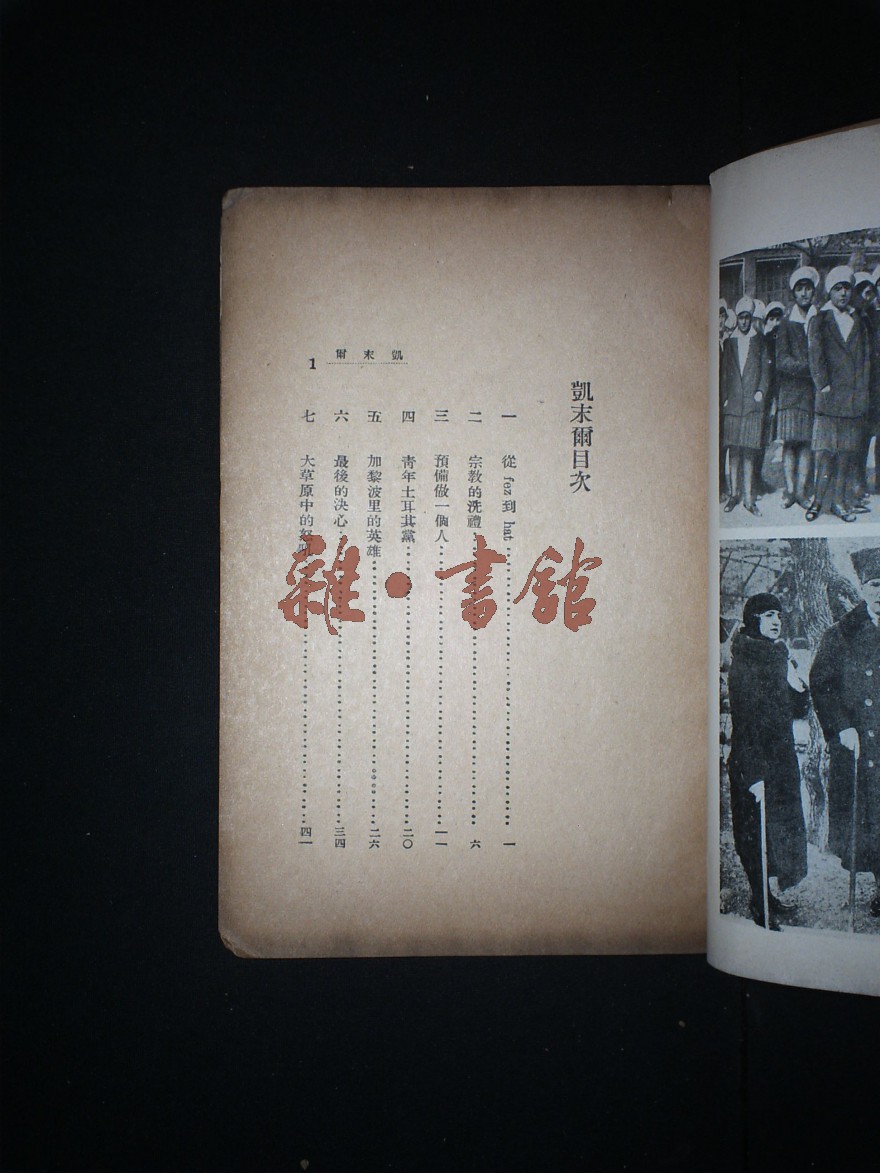 凱末爾目次
一 從 fez 到 hat……一
二 宗教的洗禮……六
三 預備做一個人……一一
四 青年土耳其黨……二〇
五 加黎波里的英雄……二六
六 最後的決心……三四
七 大草原中的怒吼……四一
凱末爾
1
雜·書館